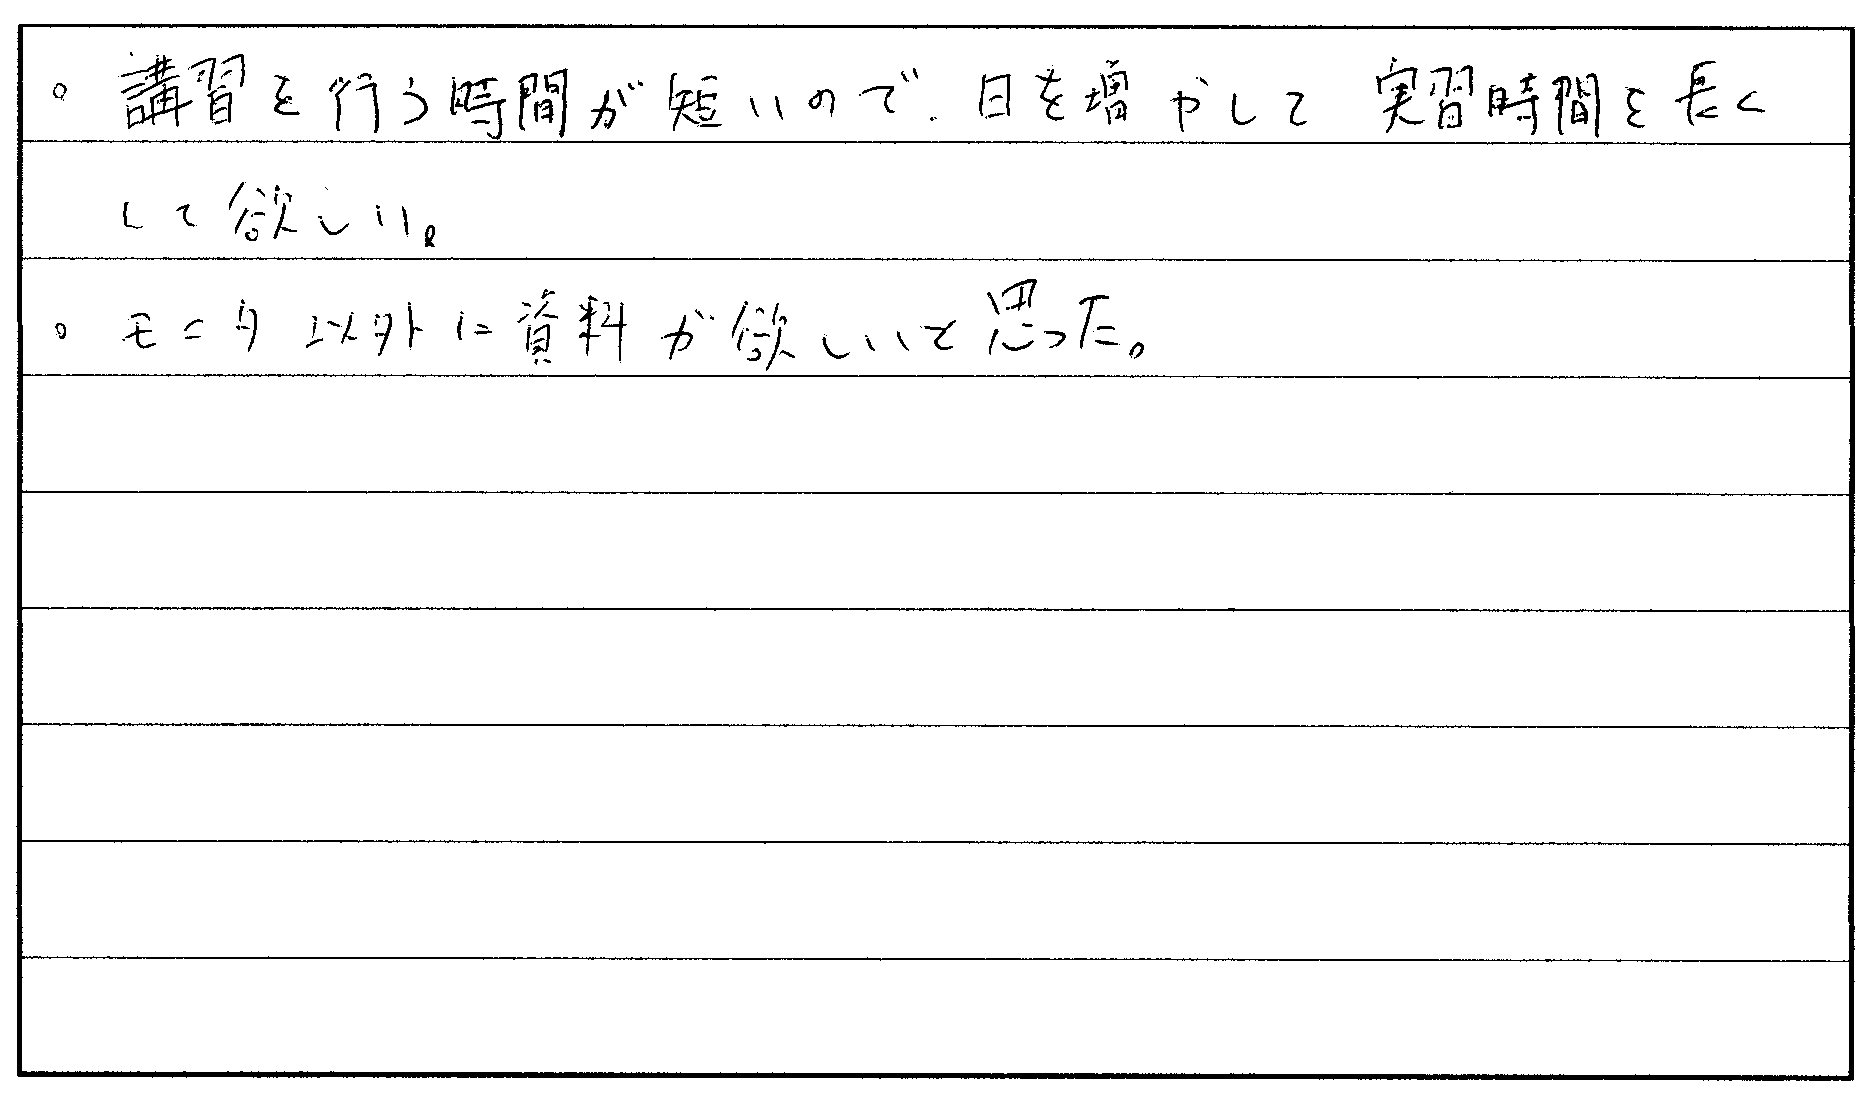 。講習を行う時間が短いので、日を増やして実習時間を長く
して欲しい。
。モニタ以外に資料が欲しいと思った。